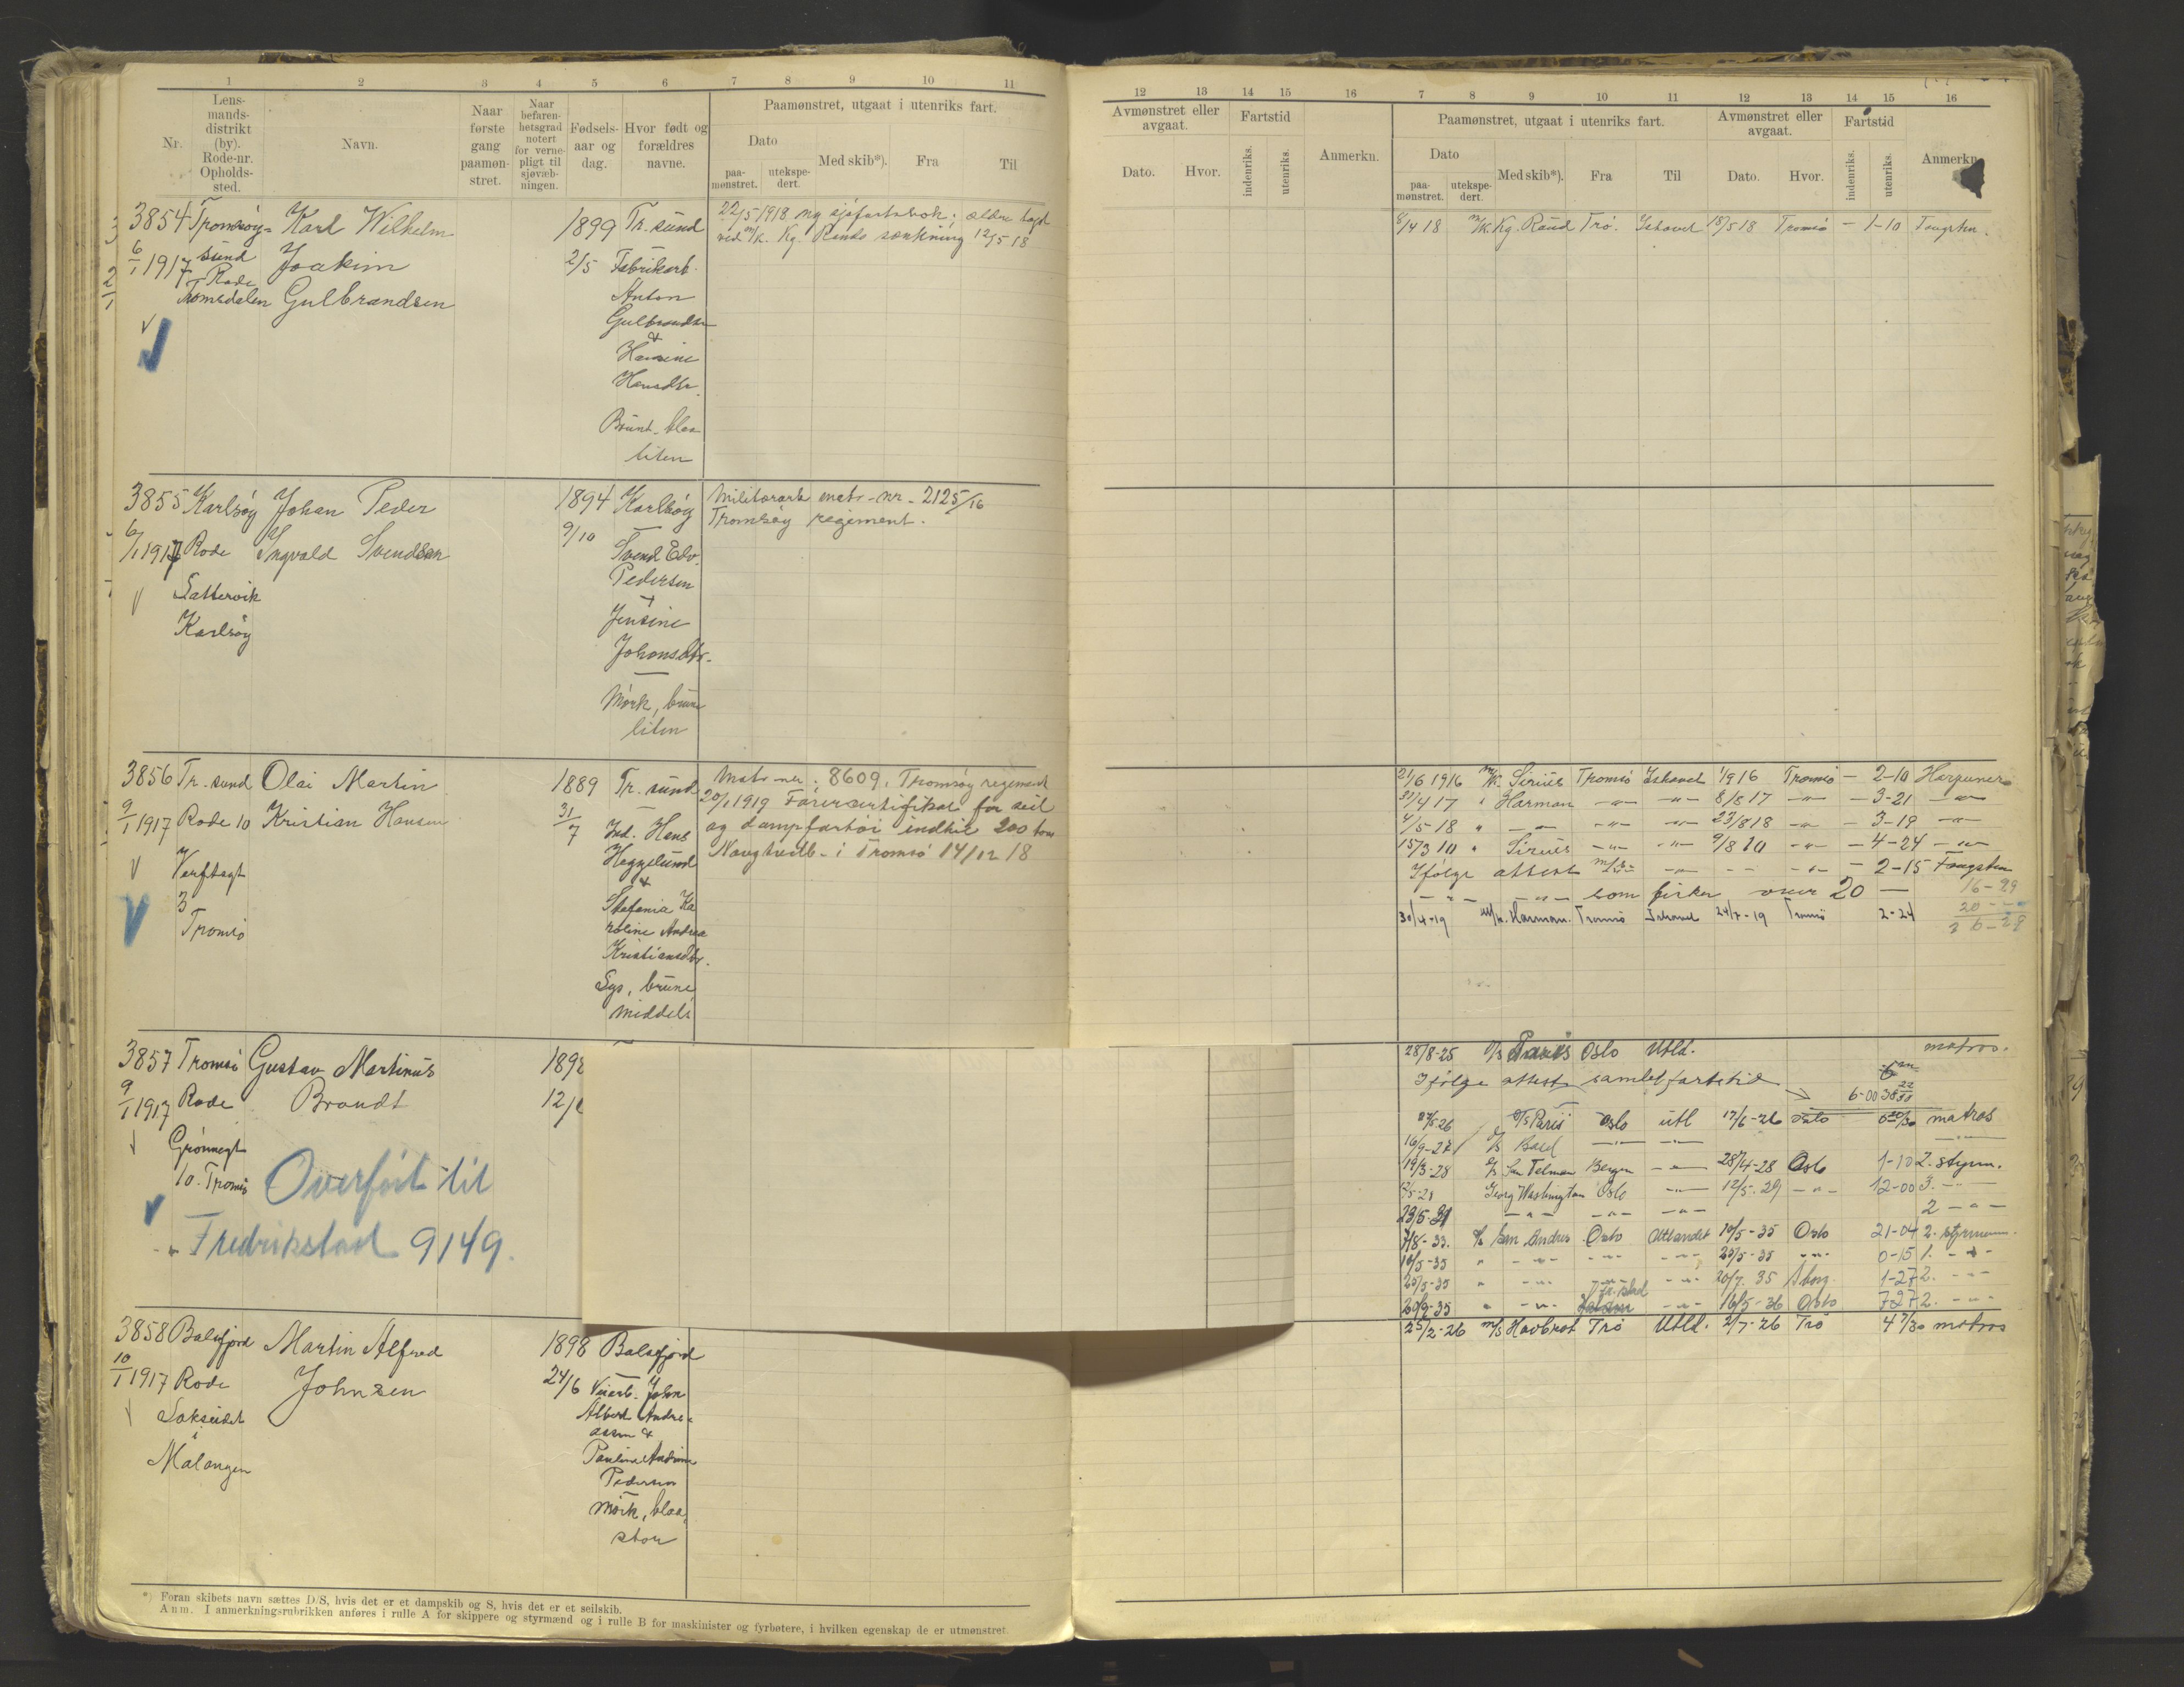 1 2 3 4 5 6 7 8 9 10 11
Nr.
Lens-
mands-
distrikt
(by).
Rode-nr.
Opholds-
sted.
Navn.
Naar
første
gang
paamøn-
stret.
Naar
befaren-
hetsgrad
notert
for verne-
pligt til
sjøvæb-
ningen.
Fødsels-
aar og
dag.
Hvor født og
forældres
navne.
Paamønstret, utgaat i utenriks fart.
Dato
paa-
mønstret.
utekspe-
dert.
Med skib*).
Fra
Til
3854 Tromsøy-
sund
6/1 1917 Rode
Tromsdalen
Karl Wilhelm
Joakim
Gulbrandsen
1899
2/5
Tr. sund
Fabrikarb.
Anton
Gulbrandsen
&
Hansine
Hansdtr.
Brunt, blaa
liten
22/5 1918 ny sjøfartsbok; ældre tapt
ved m/k. Kg. Rauds sænkning 12/5 18
3855 Karlsøy
6/1 1917 Rode
Sattervik
Karlsøy
Johan Peder
Ingvald Svendsen
1894
9/10
Karlsøy
Svend Edv.
Pedersen
+
Jensine
Johansdtr.
Mørk, brune
liten
Militærark matr-nr. 2125/16
Tromsøy regiment.
3856 Tr. sund
9/1 1917 Rode 10
Verftsgt
3
Tromsø
Olai Martin
Kristian Hansen
1889
31/7
Tr. sund
Ind. Hans
Heggelund
&
Stefania Ka
roline Andrea
Kristiansdtr.
Lys, brune
middels
Matr-nr. 8609. Tromsøy regiment
20/1 1919 Førercertifikat for seil
og dampfartøi indtil 200 tons
Navgtredb. i Tromsø 14/12 18
3857 Tromsø
9/1 1917 Rode
Grønnegt
10. Tromsø
Gustav Martinus
Brandt
1898
12/
Overført til
Fredrikstad 9149.
3858 Balsfjord
10/1 1917 Rode
Sokseidet
i
Malangen
Martin Alfred
Johnsen
1898
24/6
Balsfjord
John
Albert Andre-
assen &
Pauline Andrine
Pedersen
mørk, blaa,
stor
*) Foran skibets navn sættes D/S, hvis det er et dampskib og S, hvis det er et seilskib.
Anm. I anmerkningsrubrikken anføres i rulle A for skippere og styrmænd og i rulle B for maskinister og fyrbøtere, i hvilken egenskap de er utmønstret.
12 13 14 15 16 7 8 9 10 11 12 13 14 15 16
Avmønstret eller
avgaat.
Dato. Hvor.
Fartstid
indenriks.
utenriks.
Anmerkn.
Paamønstret, utgaat i utenriks fart.
Dato
paa-
mønstret.
utekspe-
dert.
Med skib*). Fra Til
Avmønstret eller
avgaat.
Dato. Hvor.
Fartstid
indenriks.
utenriks.
Anmerkn.
8/4 18 m/k. Kg. Raud Trø. Ishavet 18/5 18 Tromsø - 1-10 Fangstm.
21/6 1916 m/k. Sirius Tromsø Ishavet 1/9 16 Tromsø - 2-10 Harpuner
4 17 " Harman -"- -"- 8/8 17 -"- - 3-21 -"-
4/5 18 " -"- -"- -"- 23/8 18 -"- - 3-19 -"-
15/3 10 " Sirius -"- -"- 9/8 10 -"- - 4-24 -"-
Ifølge attest m/k -"- -"- -"- - 2-15 Fangstm
-"- -"- som fisker over 20 - 16-29
30/4-19 m/k. Harman. Tromsø Ishavet 24/7-19 Tromsø 2-24
28/8-25 D/S Paris Oslo Utld. matros.
Ifølge attest samlet fartstid
6-00
D/S Paris Oslo utl 17/6-26 Oslo matros
16/9-27
19/3-28 San Telmar Bergen -"- 28/4-28 Oslo 1-10 2. styrm.
Georg Washington Oslo -"- 12/5-29 -"- 12-00 3. -"-
-"- -"- -"- 2 -"-
San Andres Oslo Utlandet 10/5-35 Oslo 21-04 2. styrmann.
10/5-35 " -"- -"- -"- 25/5-35 -"- 0-15 1. -"-
25/5-35 " -"- -"- -"- 20/7 35 1-27 2. -"-
20/9-35 " -"- Fr.stad -"- 16/5-36 Oslo 7 27 2. -"-
25/2-26 m/s Havbrot Trø Utld. 2/7-26 Trø 4 7/30 matros